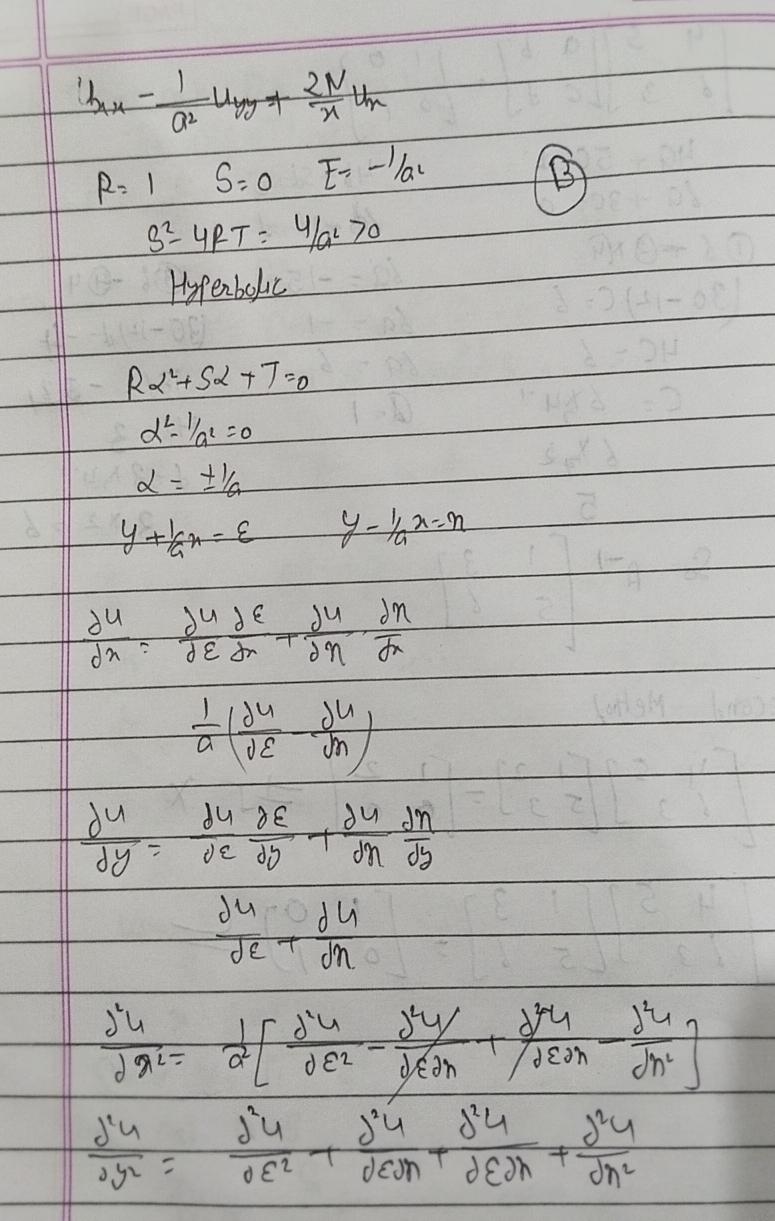 Uxx - 1/a² Uyy + 2N/x Ux
R = 1 S = 0 T = -1/a²
B
S² - 4RT = 4/a² > 0
Hyperbolic
Rα² + Sα + T = 0
α² - 1/a² = 0
α = ± 1/a
y + 1/a x = ε y - 1/a x = η
∂u/∂x = ∂u/∂ε ∂ε/∂x + ∂u/∂η · ∂η/∂x
1/a (∂u/∂ε - ∂u/∂η)
∂u/∂y = ∂u/∂ε ∂ε/∂y + ∂u/∂η ∂η/∂y
∂u/∂ε + ∂u/∂η
∂²u/∂x² = 1/a² [∂²u/∂ε² - ∂²u/∂ε∂η + ∂²u/∂ε∂η - ∂²u/∂η²]
∂²u/∂y² = ∂²u/∂ε² + ∂²u/∂ε∂η + ∂²u/∂ε∂η + ∂²u/∂η²